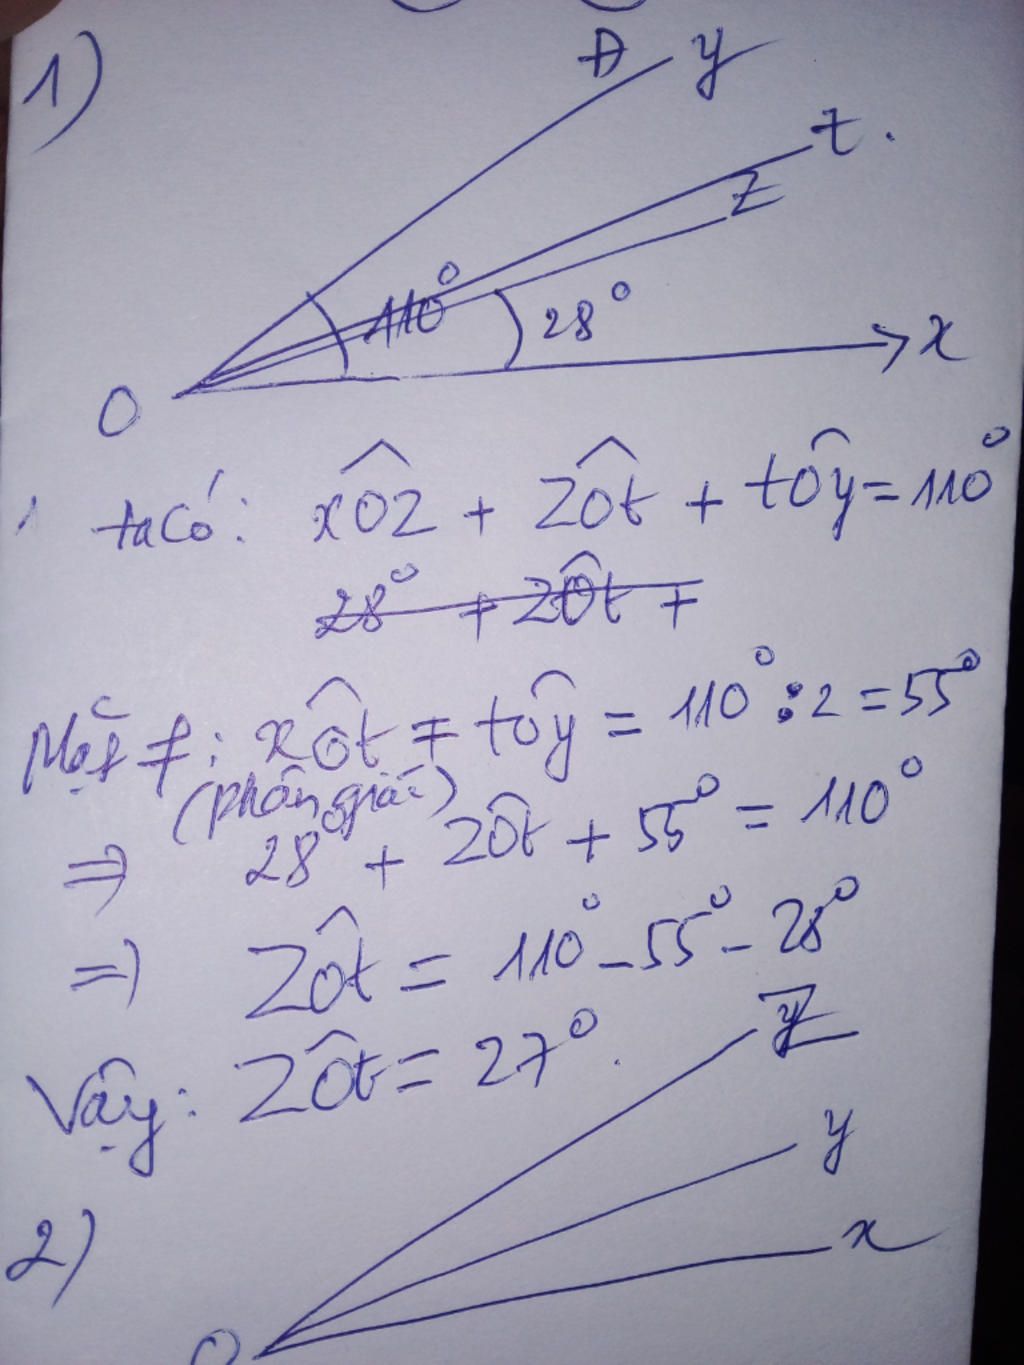 1)
A y
t.
z
110°
28°
x
O
ta có: xÔz + zÔt + tÔy = 110°
28° + zÔt +
Mặt ≠: xÔt = tÔy = 110° : 2 = 55°
(phân giác)
=> 28° + zÔt + 55° = 110°
=> zÔt = 110° - 55° - 28°
Vậy: zÔt = 27°.
z
y
2)
x
O